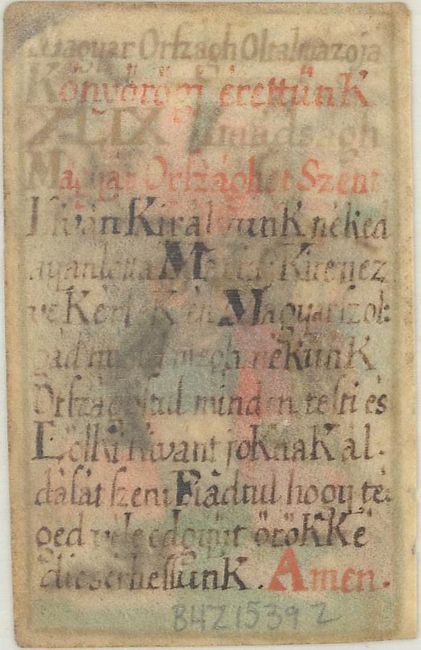 Magyar Orſzágh Oltalmazója
Könyörögj érettünK
XLIX Imádságh
Magyar Orſzághot Szent
Iſtván KirályunK néked
ajánlotta
Kérünk Magyar
megh néKünK
Orſzágoſtul minden teſti és
Lölki kivánt joKnaK ál-
dását szent Fiádtul hogy té-
ged véle edgyüt örökKé
dicsérheſſünK. Amen.
BHZ15392